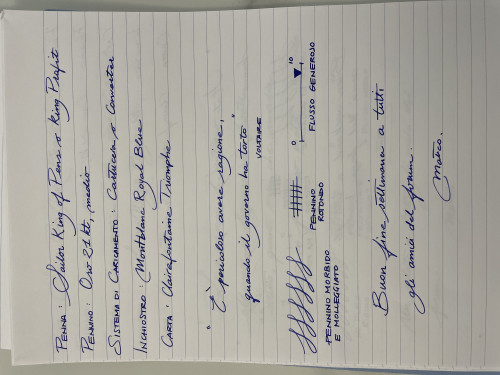 PENNA: Sailor King of Pens o King Profit
PENNINO: Oro 21 kt, medio
SISTEMA DI CARICAMENTO: Cartuccia o Converter
INCHIOSTRO: Montblanc Royal Blue
CARTA: Clairefontaine Triomphe
" È pericoloso avere ragione,
quando il governo ha torto "
VOLTAIRE
PENNINO MORBIDO
E MOLLEGGIATO
PENNINO
ROTONDO
0 10
FLUSSO GENEROSO
Buon fine settimana a tutti
gli amici del forum.
Marco.